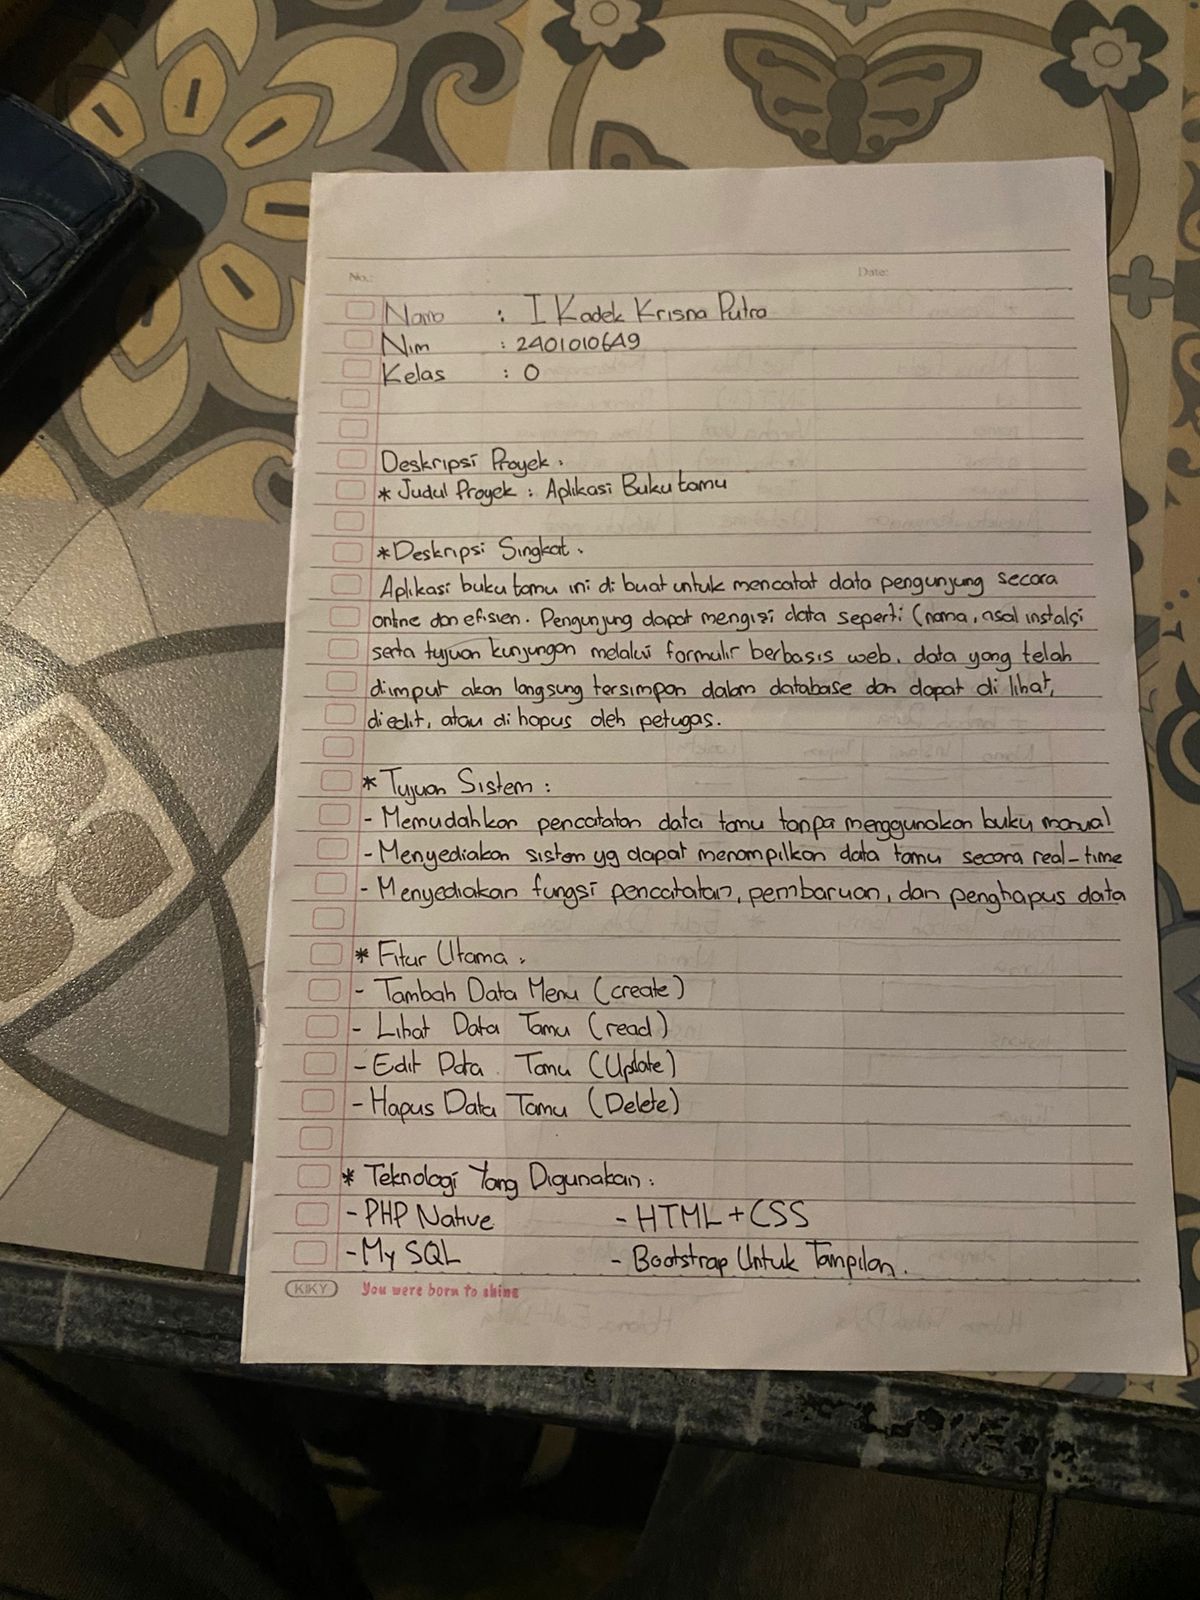 No.:
Date:
Nama : I Kadek Krisna Putra
Nim : 2401010649
Kelas : O
Deskripsi Proyek :
* Judul Proyek : Aplikasi Buku tamu
* Deskripsi Singkat :
Aplikasi buku tamu ini di buat untuk mencatat data pengunjung secara
online dan efisien. Pengunjung dapat mengisi data seperti (nama, asal instalsi
serta tujuan kunjungan melalui formulir berbasis web. data yang telah
diimput akan langsung tersimpan dalam database dan dapat di lihat,
di edit, atau di hapus oleh petugas.
* Tujuan Sistem :
- Memudahkan pencatatan data tamu tanpa menggunakan buku manual
- Menyediakan sistem yg dapat menampilkan data tamu secara real-time
- Menyediakan fungsi pencatatan, pembaruan, dan penghapus data
* Fitur Utama :
- Tambah Data Menu (create)
- Lihat Data Tamu (read)
- Edit Data Tamu (Update)
- Hapus Data Tamu (Delete)
* Teknologi Yang Digunakan :
- PHP Native - HTML + CSS
- My SQL - Bootstrap Untuk Tampilan.
KIKY You were born to shine